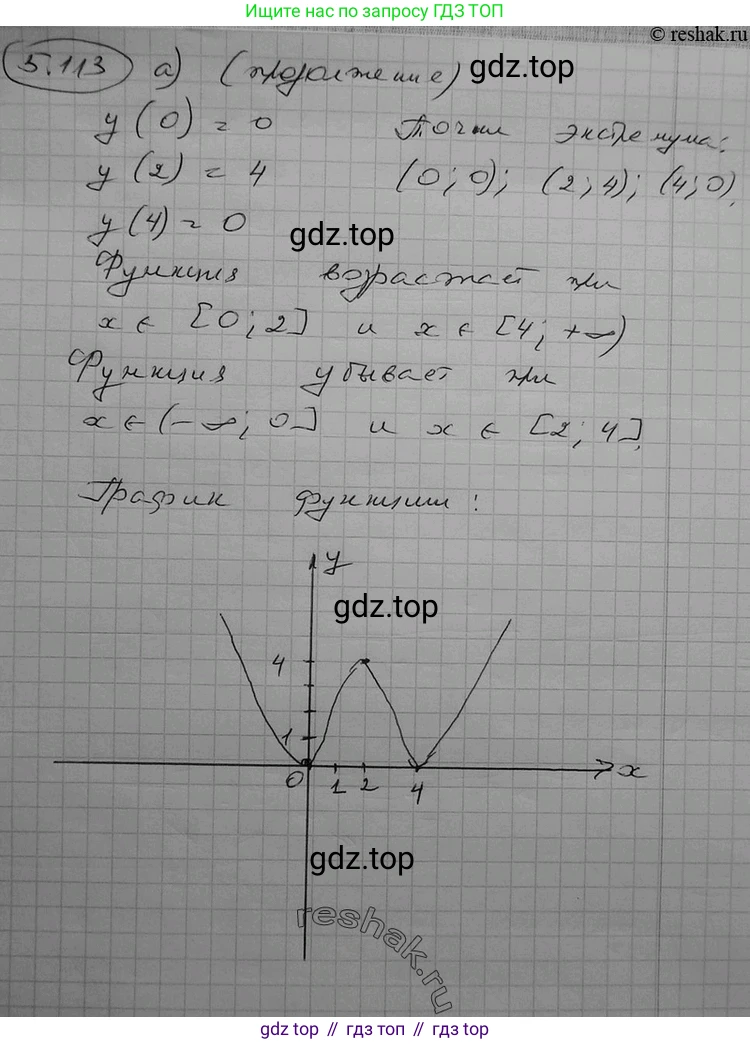 Ищите нас по запросу ГДЗ ТОП
© reshak.ru
5.113 а) (продолжение) gdz.top
y(0) = 0 Точки экстремума:
y(2) = 4 (0; 0); (2; 4); (4; 0),
y(4) = 0
gdz.top
Функция возрастает при
x ∈ [0; 2] и x ∈ [4; +∞)
Функция убывает при
x ∈ (-∞; 0] и x ∈ [2; 4],
График функции:
y
gdz.top
4
1
0 1 2 4 x
gdz.top
reshak.ru
gdz top // гдз топ // gdz top